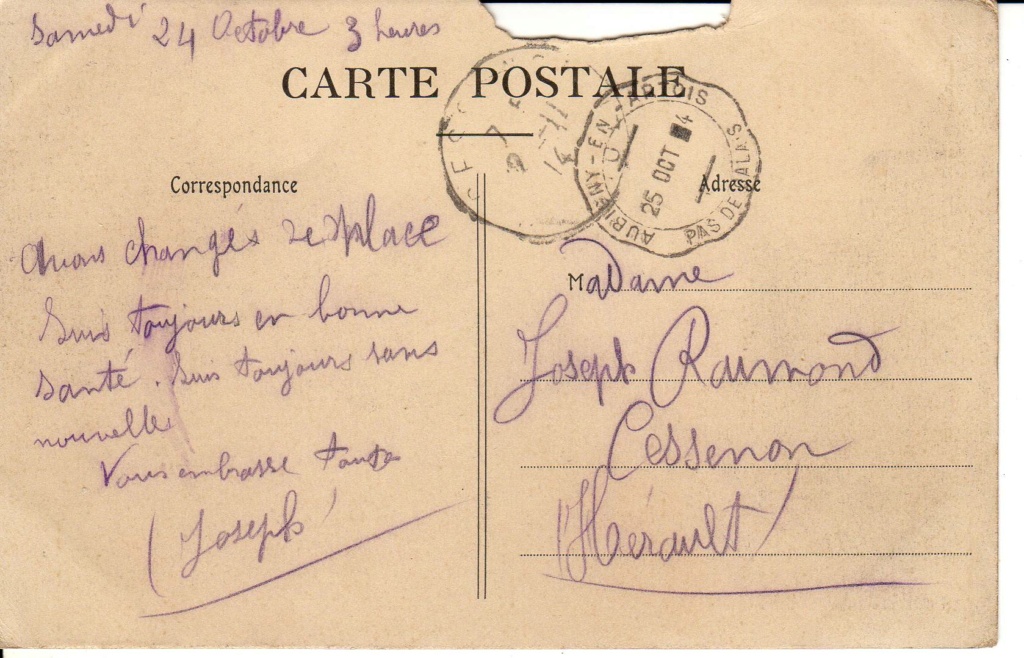 Samedi 24 Octobre 3 heures
CARTE POSTALE
AUBIGNY-EN-ARTOIS
25 OCT 4
PAS DE CALAIS
Correspondance
Adresse
Avons changés de place
Suis toujours en bonne
santé. Suis toujours sans
nouvelles
Vous embrasse toutes
(Joseph)
Madame
Joseph Raimond
Cessenon
(Hérault)